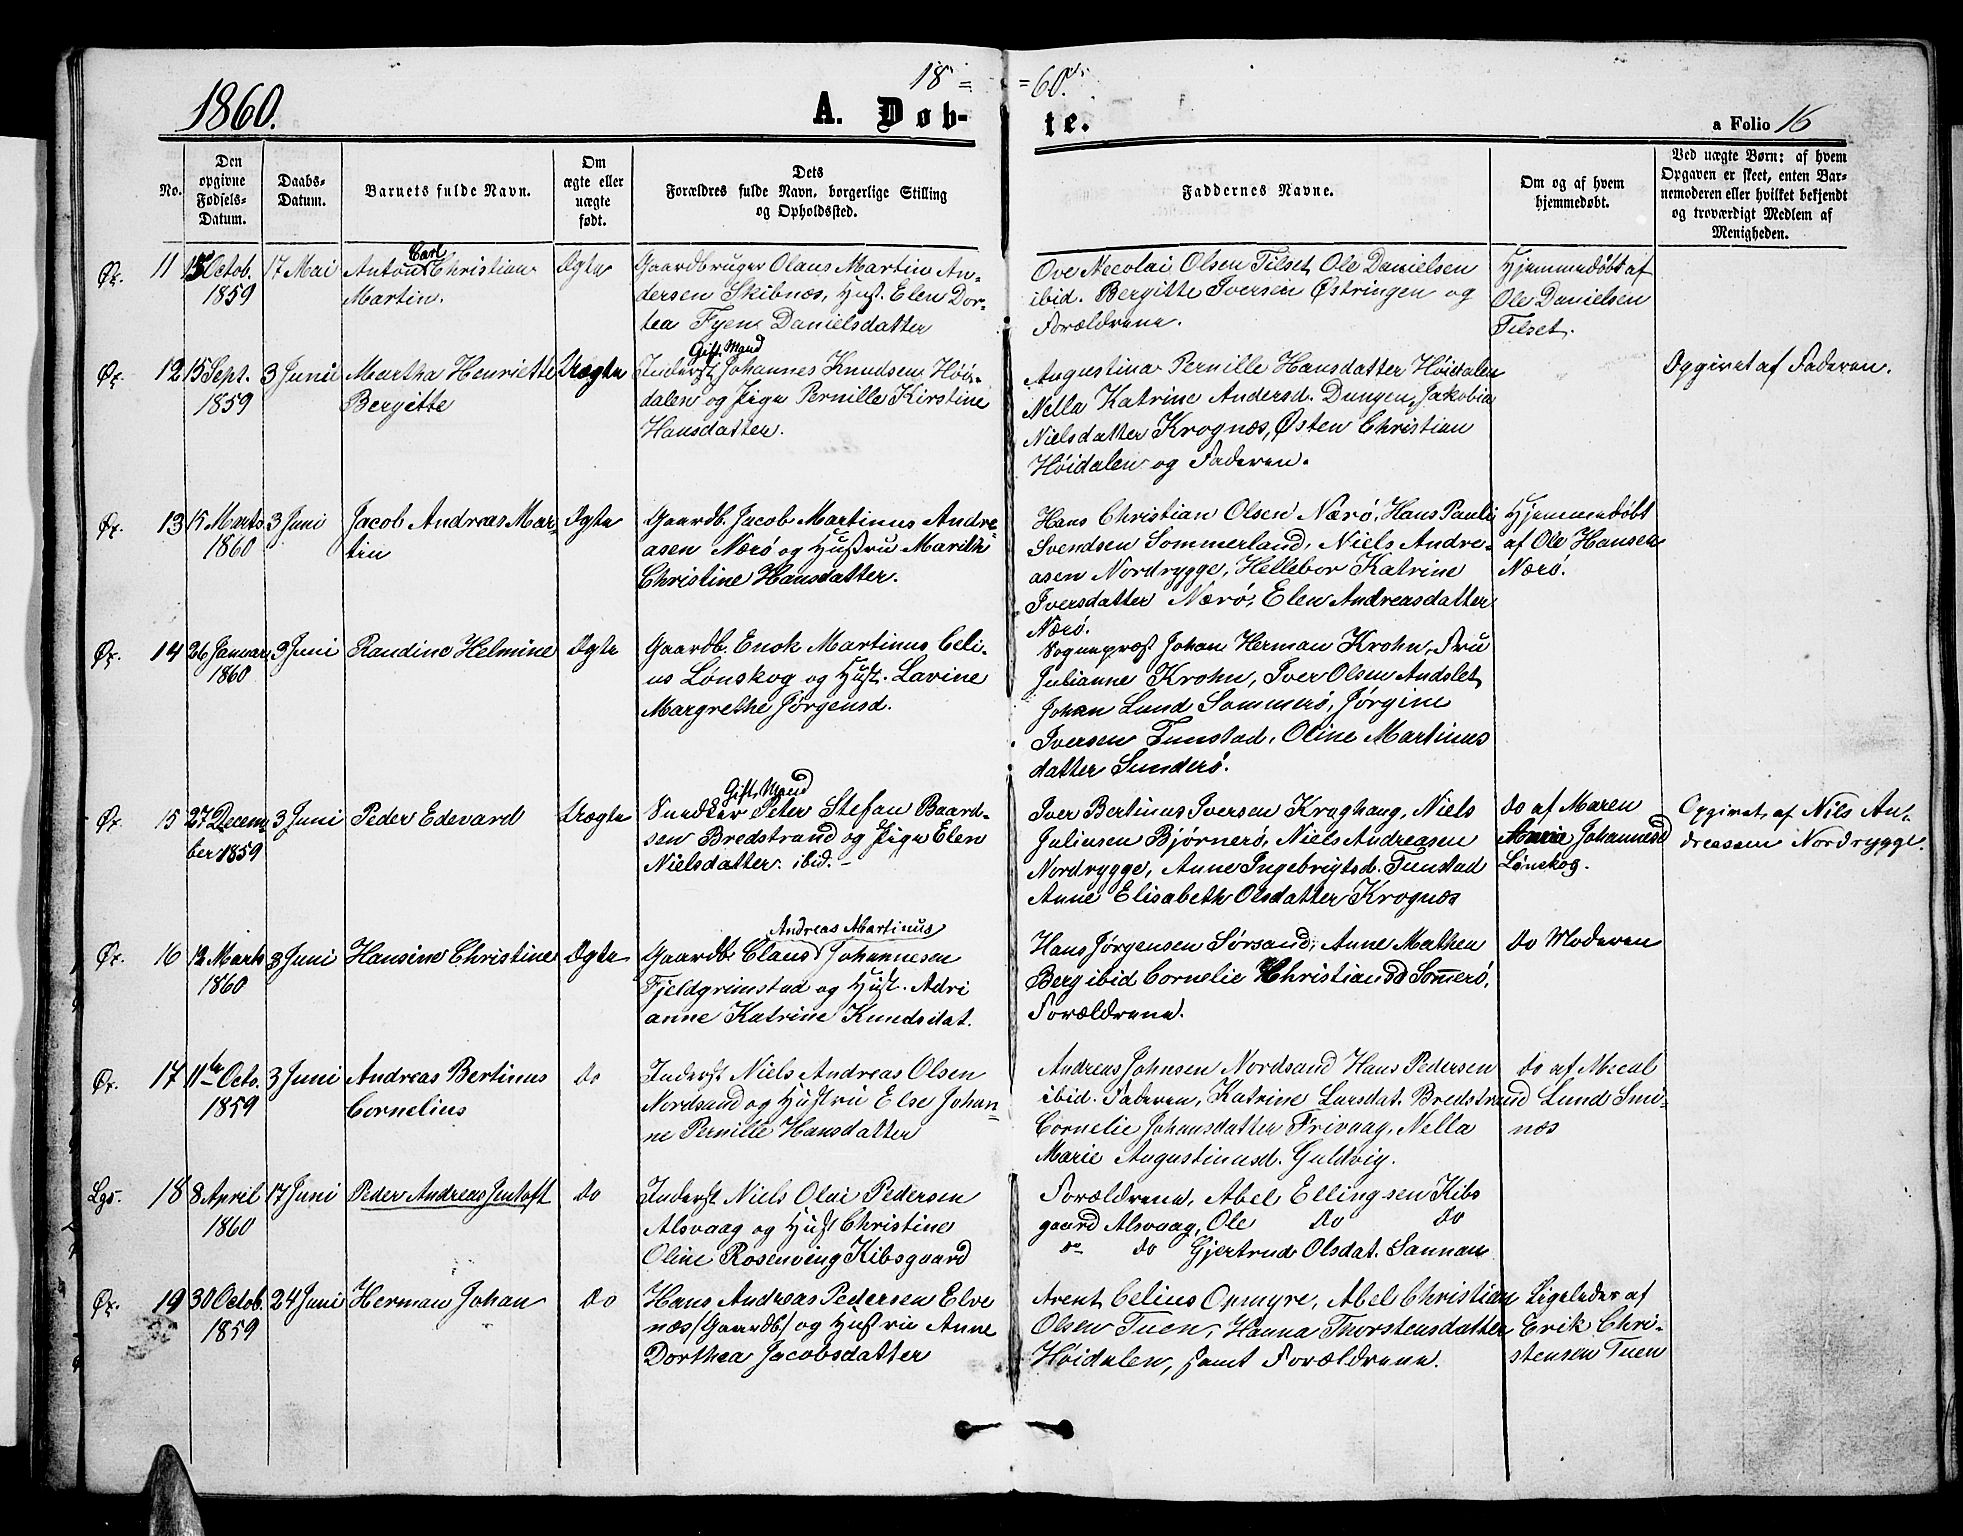 18 = = 60.
1860. A. Døb- te. a Folio 16
No.
Den opgivne Fødsels-Datum.
Daabs-Datum.
Barnets fulde Navn.
Om ægte eller uægte født.
Dets Forældres fulde Navn, borgerlige Stilling og Opholdssted.
Faddernes Navne.
Om og af hvem hjemmedøbt.
Ved uægte Børn: af hvem Opgaven er skeet, enten Barnemoderen eller hvilket bekjendt og troværdigt Medlem af Menigheden.
Øx. 11 15 Octob. 17 Mai Anton Carl Christian Ægte Gaardbruger Olaus Martin An- Ove Necolai Olsen Tilset, Ole Danielsen Hjemmedøbt af
1859 Martin. dersen Skibnæs, Hust. Elen Dor- ibid. Bergitte Iversen Østringen og Ole Danielsen
tea Fyen Danielsdatter Forældrene. Tilset.
Gift Mand
Øx. 12 15 Sept. 3 Junii Martha Henriette Uægte Inderst Johannes Knudsen Høi- Augustina Pernille Hansdatter Høidalen Opgivet af Faderen.
1859 Bergitte dalen og Pige Pernille Kirstine Nella Katrine Andersd. Dungen, Jakobia
Hansdatter. Nielsdatter Krognæs, Østen Christian
Høidalen og Faderen.
Øx. 13 15 Marts 3 Juni Jacob Andreas Mar- Ægte Gaardb. Jacob Martinus Andre- Hans Christian Olsen Nærø, Hans Pauli Hjemmedøbt
1860 tin asen Nærø og Hustru Marith Svendsen Sommerland, Niels Andre- af Ole Hansen
Christine Hansdatter. asen Nordrygge, Hellebor Katrine Nærø.
Iversdatter Nærø, Elen Andreasdatter
Nærø.
Øx. 14 26 Januar 3 Juni Randine Helmine Ægte Gaardb. Enok Martinus Celi- Sognepræst Johan Herman Krohn, Fru
1860 us Lonskog og Hust. Lavine Julianne Krohn, Iver Olsen Andslet,
Margrethe Jørgensd. Johan Lund Sommerø, Jørgine
Iversen Tunstad, Oline Martinus
datter Sunderø.
Gift Mand
Øx. 15 27 Decem 3 Juni Peder Edevard Uægte Peter Stefan Baard- Iver Bertinus Iversen Kroghaug, Niels do af Maren Opgivet af Nils An-
ber 1859 sen Bredstrand og Pige Elen Juliusen Bjørnerø, Niels Andreasen Maria Johannesd dreassen Nordrygge.
Nielsdatter. ibid. - Nordrygge, Anne Ingebrigtsd. Tunstad Lønskog.
Anne Elisabeth Olsdatter Krognæs
Andreas Martinus
Øx. 16 12 Marts 3 Juni Hansine Christine Ægte Gaardb. Claus Johannesen Hans Jørgensen Sørsand, Anne Mathea do Moderen
1860 Fjeldgrimstad og Hust. Adri Berg ibid Cornelie Christiansd Sommerø,
anne Katrine Kundsdat. Forældrene.
Øx. 17 11te Octo. 3 Juni Andreas Bertinus do Inderst Niels Andreas Olsen Andreas Johnsen Nordsand Hans Pedersen do af Mecal
1859 Cornelius Nordsand og Hustru Else Johan- ibid. Faderen, Katrine Larsdat. Bredstrand Lund Smi-
ne Pernille Hansdatter Cornelie Johansdatter Frivaag, Nella næs
Marie Augustinusd. Guldvig.
Lgs. 18 8 April 17 Juni Peder Andreas Jentoft do Inderst Niels Olai Pedersen Forældrene, Abel Ellingsen Kibs
1860 Alsvaag og Hust Christine gaard Alsvaag, Ole do do
Oline Rosenving Kibsgaard do do Gjertrud Olsdat. Sannan
Øx. 19 30 Octob. 24 Juni Herman Johan do Hans Andreas Pedersen Elve Arent Celius Opmyre, Abel Christian Ligeleder af
1859 næs (Gaardb) og Hustru Anne Olsen Tuen, Hanna Thorstensdatter Erik Chri-
Dorthea Jacobsdatter Høidalen, samt Forældrene. stensen Tuen